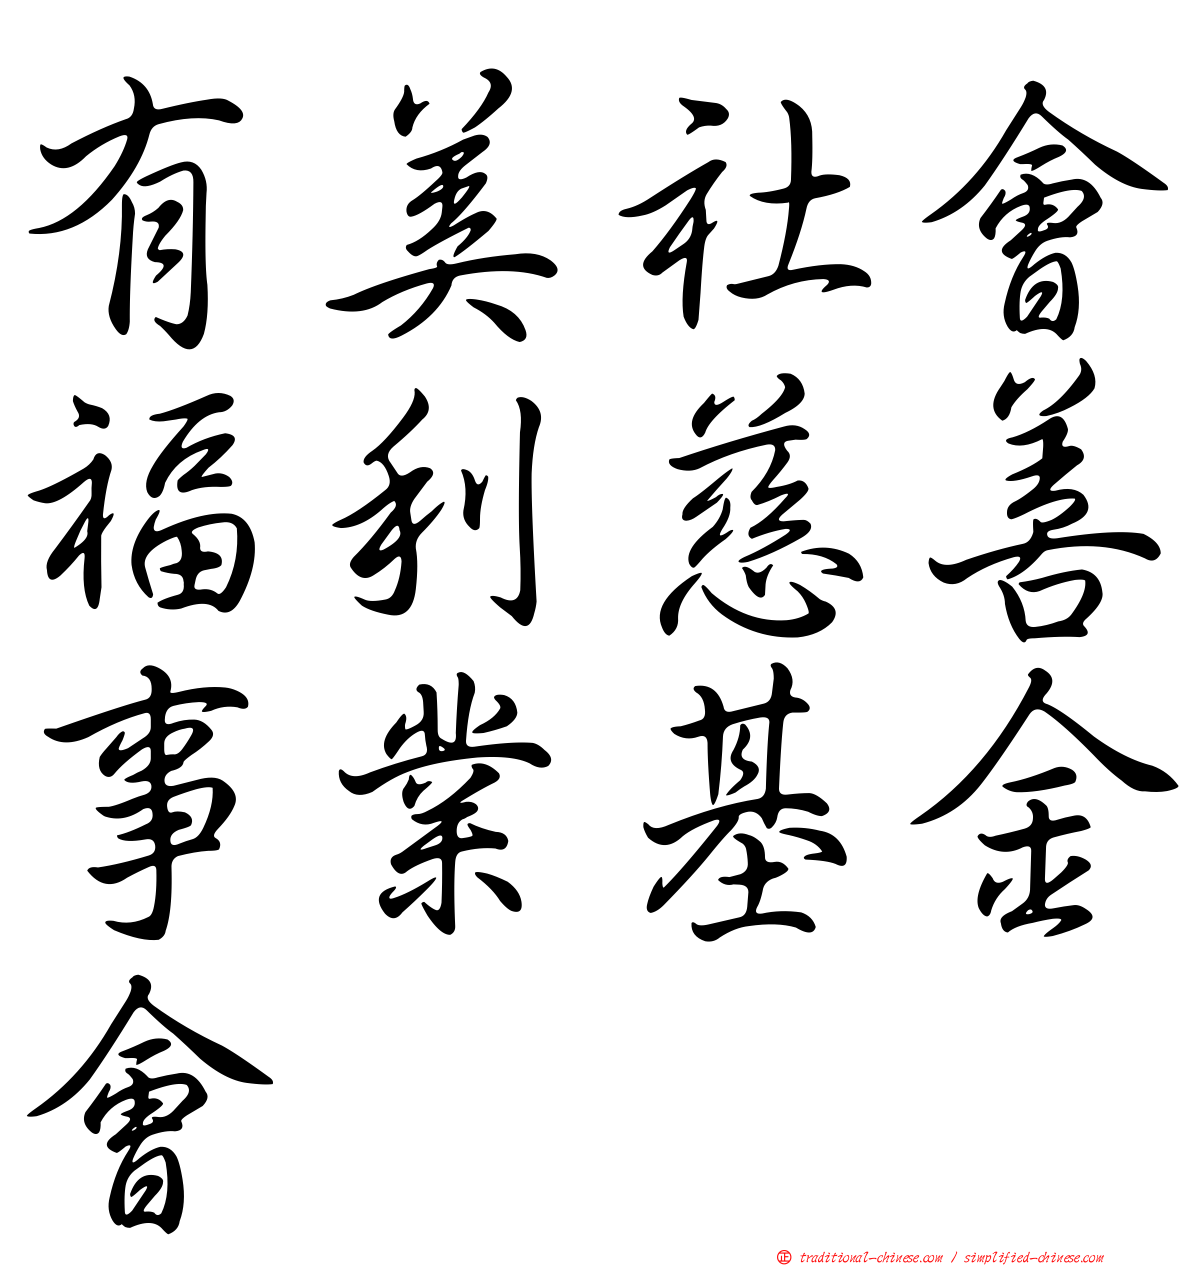 有美社會
福利慈善
事業基金
會
正 traditional-chinese.com / simplified-chinese.com